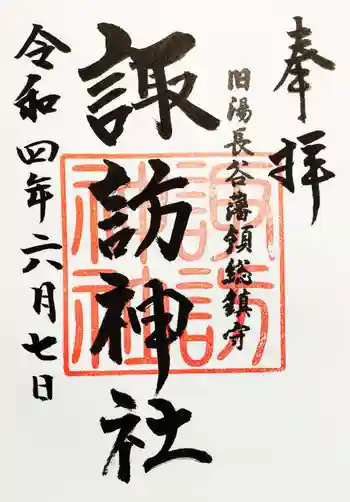 奉拝
旧湯長谷藩領総鎮守
諏訪神社
諏訪
神社
令和四年六月七日